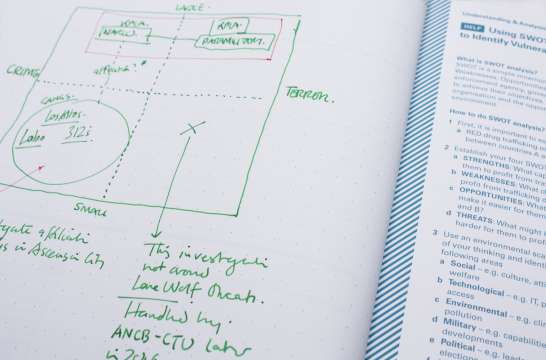 LARGE
RMLA.
NARCO.
RMLA.
PARAMILITARY.
affiliate?
CRIME
TERROR.
GANGS.
Los Atos.
Labo 312s.
SMALL
in Ascension City
This investigation
not around
Lone Wolf threats.
Handled by
ANCB-CTU later
in 2016
Understanding & Analys
HELP Using SWOT
to Identify Vulnera
What is SWOT analysis?
SWOT is a simple
Weaknesses, Opportunities
enforcement agency,
to achieve their objectives.
organisation and the
environment
How to do SWOT analysis?
1 First, it is important to
a RED-drug trafficking
between countries A
2 Establish your four SWOT
a STRENGTHS: What cap
them to profit from traf
b WEAKNESSES. What d
profit from trafficking d
c OPPORTUNITIES: What
make it easier for them
and B?
d THREATS: What might
harder for them to prof
3 Use an environmental sca
of your thinking and identi
following areas
a Social – e.g. culture, attit
welfare
b Technological – e.g. IT, p
access
c Environmental – e.g. clim
pollution
d Military – e.g. capabilities
developments
e Political – e.g. leaders,
elections